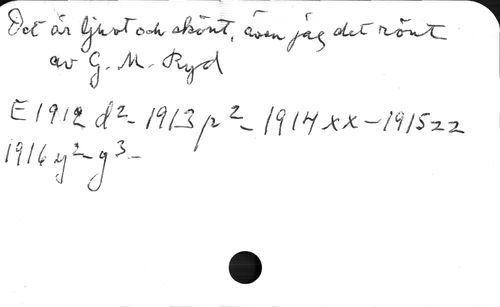 Det är ljust och skönt, även jag det rönt
av G. M. Ryd
E 1912 d² - 1913 p² - 1914 xx - 1915 zz
1916 y² - g³ -